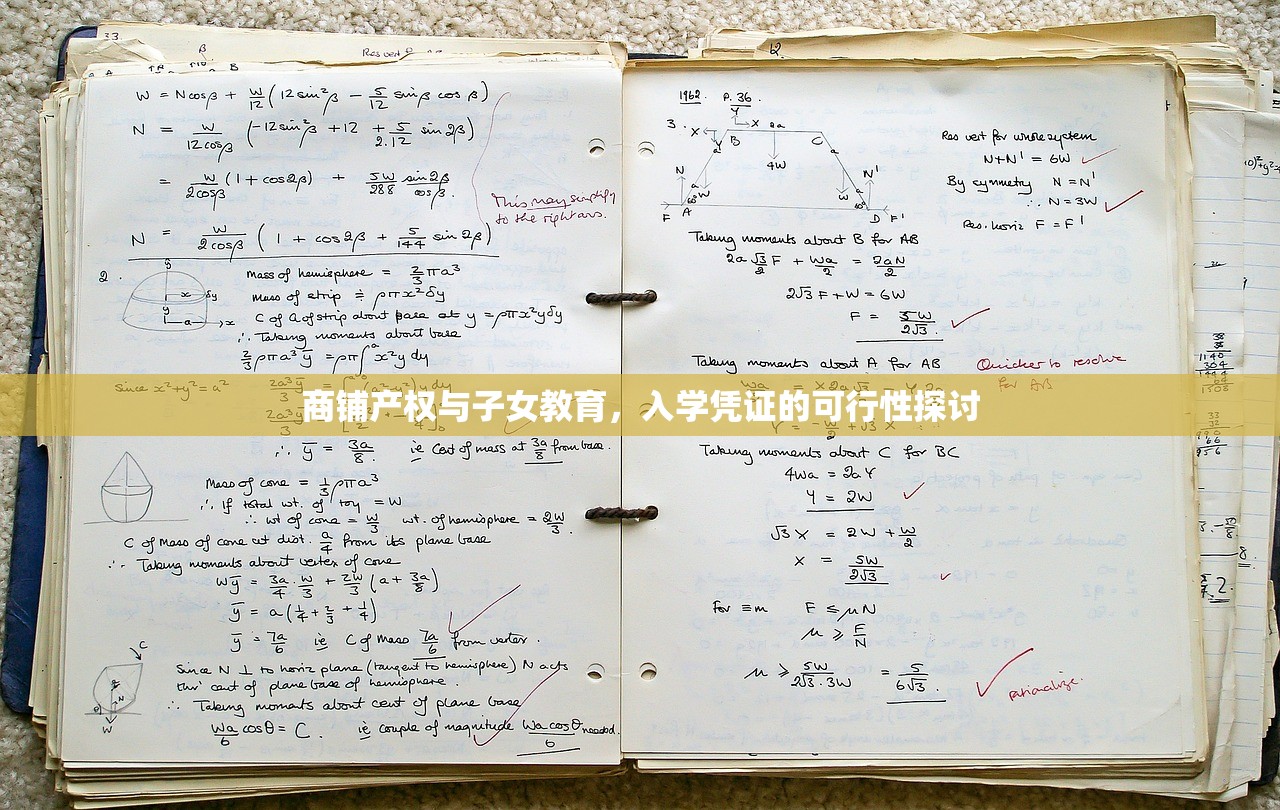 33.
Res vert
W = N cosβ + W/12 (12 sin²β − 5/12 sinβ cosβ)
N = W/12cosβ (−12 sin²β + 12 + 5/2.12 sin 2β)
= W/2cosβ (1 + cos 2β) + 5W/288 sin 2β/cosβ.
This may simplify
to the right ans.
N = W/2cosβ (1 + cos 2β + 5/144 sin 2β)
2.
Mass of hemisphere = 2/3 πa³
mass of strip ≑ ρπx²δy
C of G of strip about base at y = ρπx²yδy
∴ Taking moments about base
2/3 ρπa³ ȳ = ρπ∫x²y dy
since x²+y² = a²
商铺产权与子女教育，入学凭证的可行性探讨
∴ ȳ = 3a/8 ie Cent of mass at 3a/8 from base.
Mass of cone = 1/3 ρπa³
∴ If total wt. of toy = W
∴ wt of cone = W/3 wt. of hemisphere = 2W/3.
C of Mass of cone at dist. a/4 from its plane base
∴ Taking moments about vertex of cone
Wȳ = 3a/4 . W/3 + 2W/3 (a + 3a/8)
ȳ = a(1/4 + 2/3 + 1/4)
ȳ = 7a/6 ie C of Mass 7a/6 from vertex.
Since N ⊥ to horiz plane (tangent to hemisphere) N acts
thro' cent of plane base of hemisphere.
∴ Taking moments about cent of plane base
Wa/6 cosθ = C. ie couple of magnitude Wa cosθ/6 needed.
1962. P. 36.
3.
Res vert for whole system
N+N' = 6W
By symmetry N = N'
∴ N = 3W
Res. horiz F = F'
Taking moments about B for AB
2a √3/2 F + Wa/2 = 2aN/2
2√3 F + W = 6W
F = 5W/2√3.
Taking moments about A for AB
Quicker to resolve
for AB
Taking moments about C for BC
4Wa = 2aY
Y = 2W
√3 X = 2W + W/2
X = 5W/2√3
For ≡m F ≤ μN
μ ≥ F/N
μ ≥ 5W/2√3.3W = 5/6√3.
rationalize.